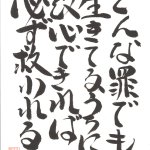 どんな罪でも
生きてるうちに
改心できれば
必ず救われる